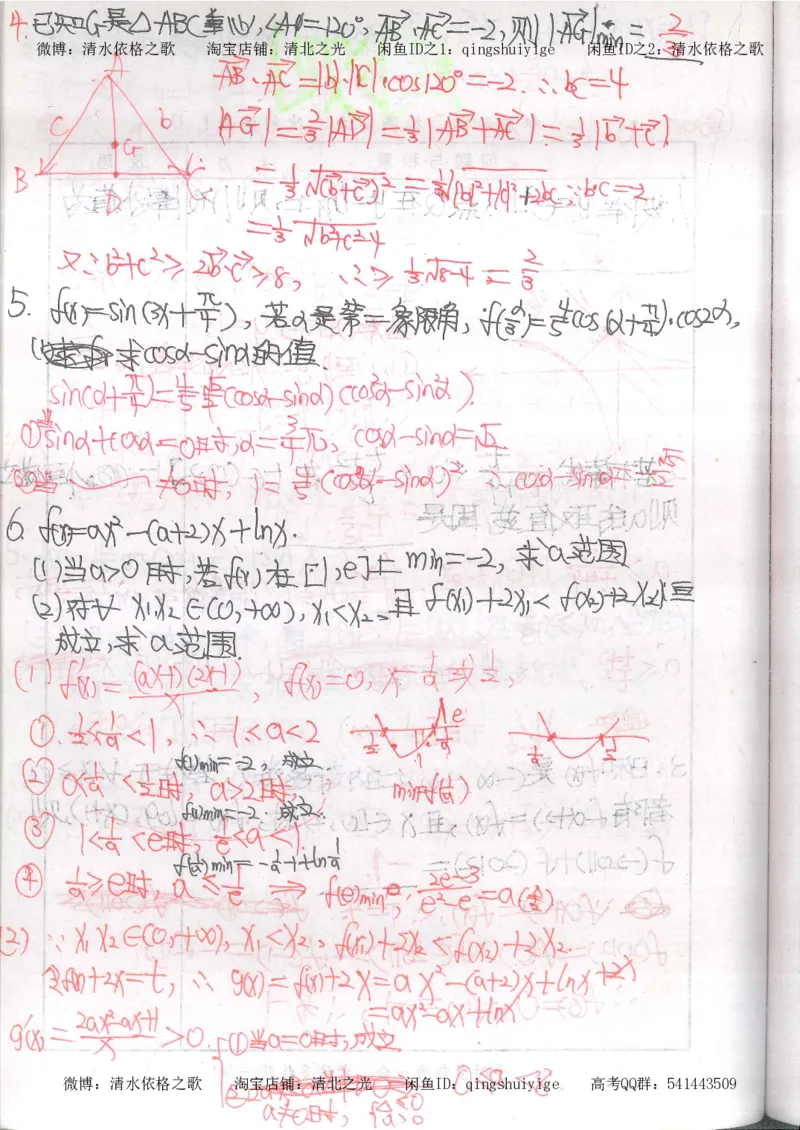 4. 已知G是△ABC重心,∠A=120°, AB·AC=-2, 则|AG|min= 2/3
微博：清水依格之歌 淘宝店铺：清北之光 闲鱼ID之1：qingshuiyige 闲鱼ID之2：清水依格之歌
AB·AC=|b|·|c|·cos120°=-2. ∴bc=4
|AG|=2/3|AD|=1/3|AB+AC|=1/3|b+c|
=1/3√(b+c)²=1/3√|b|²+|c|²+2bc, ∵b·c=-2
=1/3√b²+c²-4
又∵b²+c²≥2b·c≥8, ∴≥1/3√8-4=2/3
A
c
b
G
B
D
C
5. f(x)=sin(3x+π/4), 若α是第二象限角, f(α/3)=4/5cos(α+π/4)·cos2α,
求cosα-sinα的值.
sin(α+π/4)=4/5(cosα-sinα)(cos²α-sin²α).
①当sinα+cosα=0时,α=3/4π, cosα-sinα=-√2
②当 ≠0时, 1=4/5(cosα-sinα)² ∴cosα-sinα=-√5/2
6. f(x)=ax²-(a+2)x+lnx.
(1)当a>0时,若f(x)在[1,e]上min=-2, 求a范围
(2)对∀x₁x₂∈(0,+∞), x₁<x₂, 且f(x₁)+2x₁<f(x₂)+2x₂恒
成立,求a范围.
(1) f'(x)=(ax-1)(2x-1)/x, f'(x)=0, x=1/a或1/2,
①. 1/2<1/a<1, ∴1<a<2
f(1)min=-2, 成立.
②0<1/a<1/2时, a>2时,
minf(1/a)
f(1)min=-2. 成立.
③1<1/a<e时, 1/e<a<1.
f(1/a)min=-1/a-1+ln1/a
④1/a≥e时, a≤1/e ⇒ f(e)min, ∴2e-3/e²-e=a(舍)
(2) ∵x₁x₂∈(0,+∞), x₁<x₂, f(x₁)+2x₁≤f(x₂)+2x₂.
令f(x)+2x=t, ∴g(x)=f(x)+2x=ax²-(a+2)x+lnx+2x
=ax²-ax+lnx
g'(x)=2ax²-ax+1/x>0. ①当a=0时,成立
微博：清水依格之歌 淘宝店铺：清北之光 闲鱼ID：qingshuiyige 高考QQ群：541443509
a≠0时, △≤0
a>0